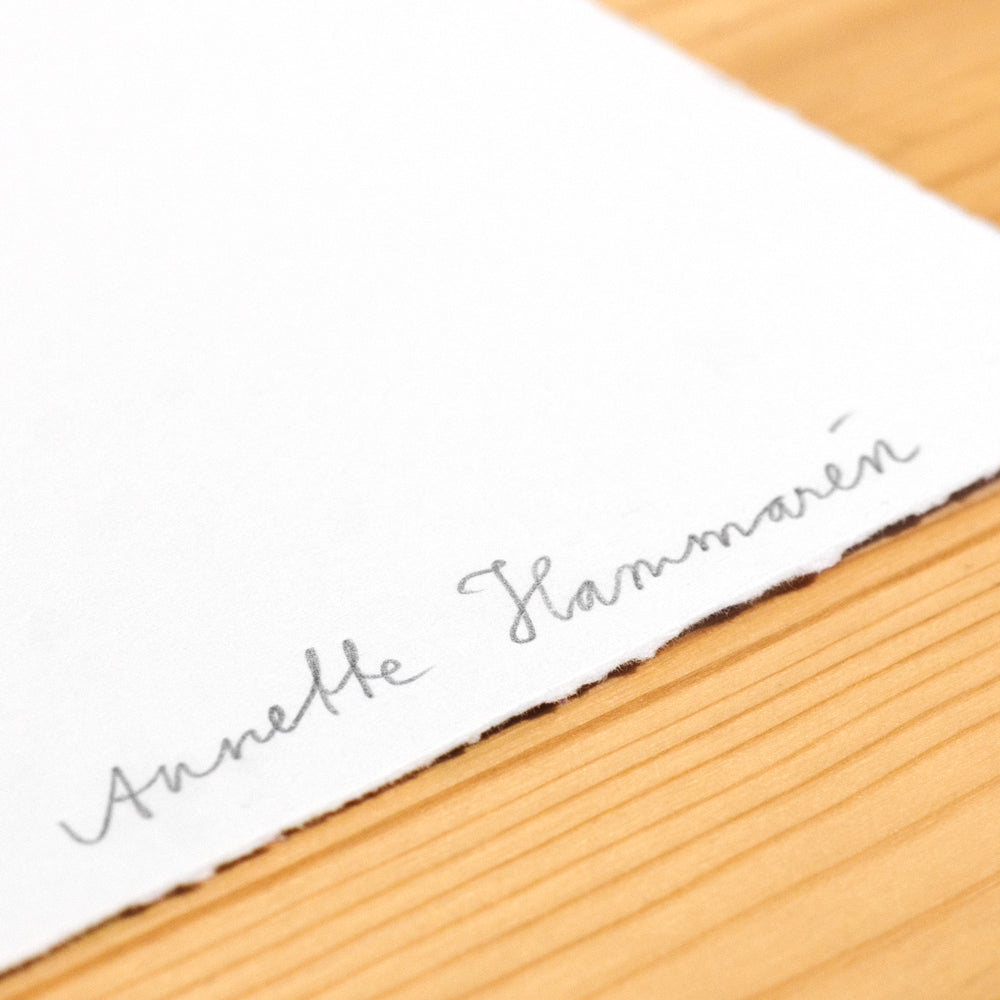 Annette Hammarén